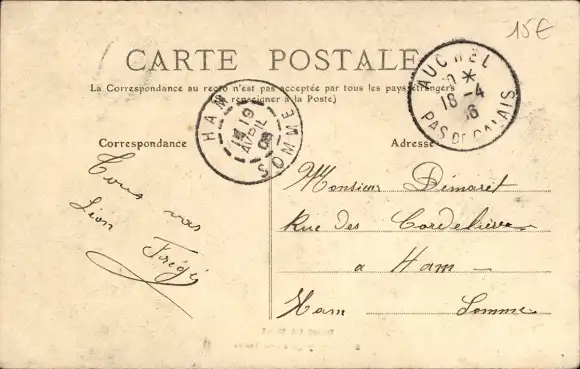 15€
CARTE POSTALE
La Correspondance au recto n'est pas acceptée par tous les pays étrangers
renseigner à la Poste)
AUCHEL
18 -4
PAS DE CALAIS
HAM
19
AVRIL
08
SOMME
Correspondance
Adresse
Tous nos
Lion
Monsieur Démaret
Rue des Cordeliers
a Ham
Ham Somme